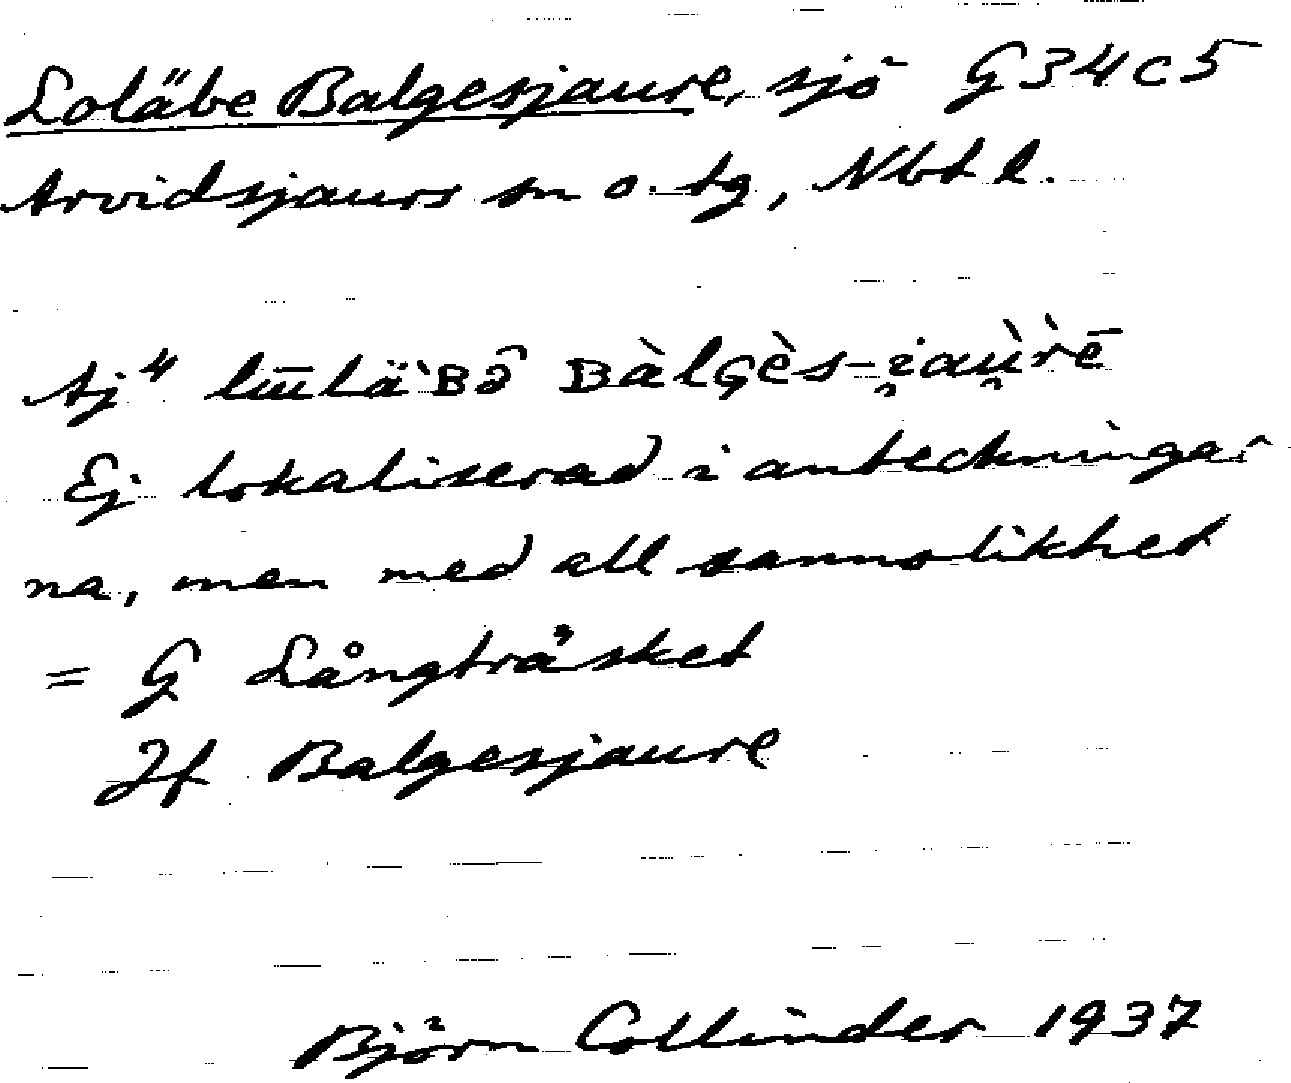 Loläbe Balgesjaure, sjö G34c5
Arvidsjaurs sn o. tg, Nbt l.
Aj⁴ lɯ̅lä̀ʙə̑ ʙàlɢès-i̯aù̯r̀ē
Ej lokaliserad i anteckningar
na, men med all sannolikhet
= G Långträsket
Jf Balgesjaure
Björn Collinder 1937